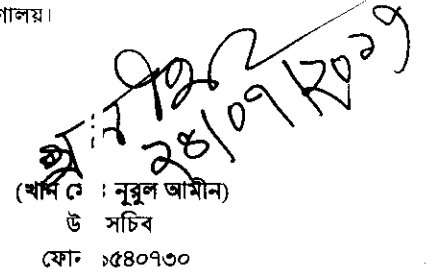 ণালয়।
২৪/০৭/২০১৭
(খান মোঃ নূরুল আমীন)
উপসচিব
ফোন ৯৫৪০৭৩০